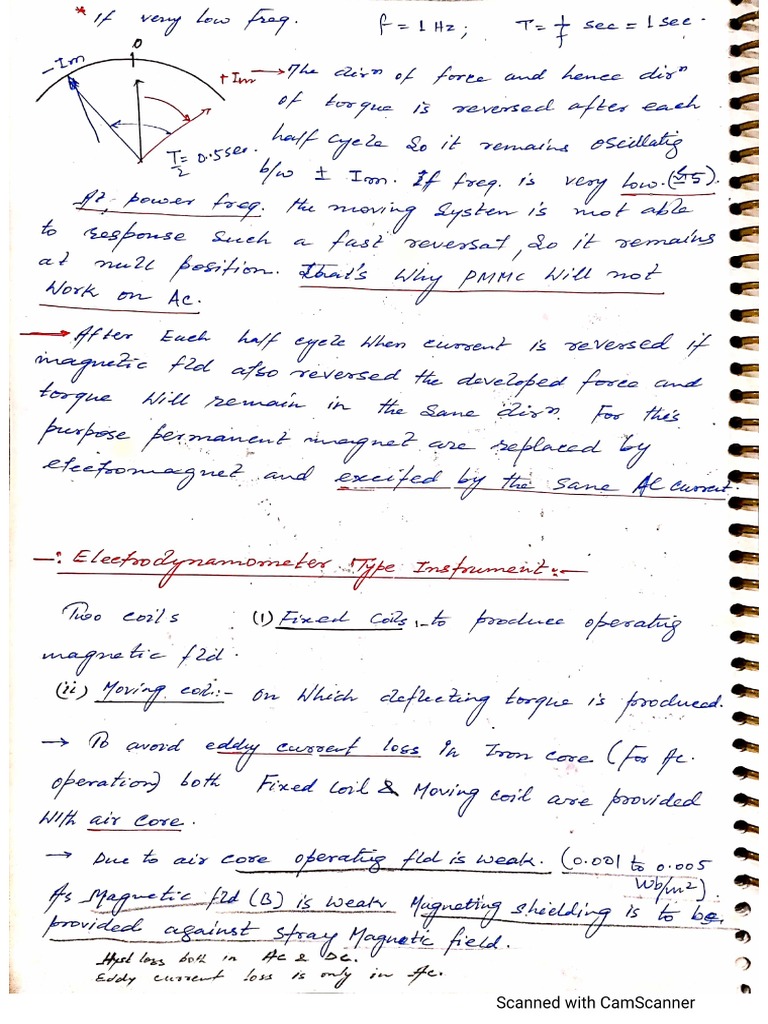 * if very low freq. f = 1 Hz; T = 1/f sec = 1 sec.
0
- Im
+ Im → The dirn of force and hence dirn
of torque is reversed after each
half cycle so it remains oscillatig
T/2 = 0.5 sec.
b/w ± Im. If freq. is very low. (≤ 5).
At power freq. the moving system is not able
to response such a fast reversal, so it remains
at null position. That's why PMMC will not
work on AC.
→ After Each half cycle when current is reversed if
magnetic fld also reversed the developed force and
torque will remain in the same dirn. For this
purpose permanent magnet are replaced by
electromagnet and excited by the same AC current.
-: Electrodynamometer Type Instrument :-
Two coils (i) Fixed Coils :- to produce operating
magnetic fld.
(ii) Moving coil :- on which deflecting torque is produced.
→ To avoid eddy current loss in Iron core (for Ac.
operation) both Fixed coil & Moving coil are provided
with air core.
→ Due to air core operating fld is weak. (0.001 to 0.005
Wb/m²).
As Magnetic fld (B) is weak Magneting shielding is to be
provided against stray Magnetic field.
Hyst loss both in AC & DC.
Eddy current loss is only in Ac.
Scanned with CamScanner